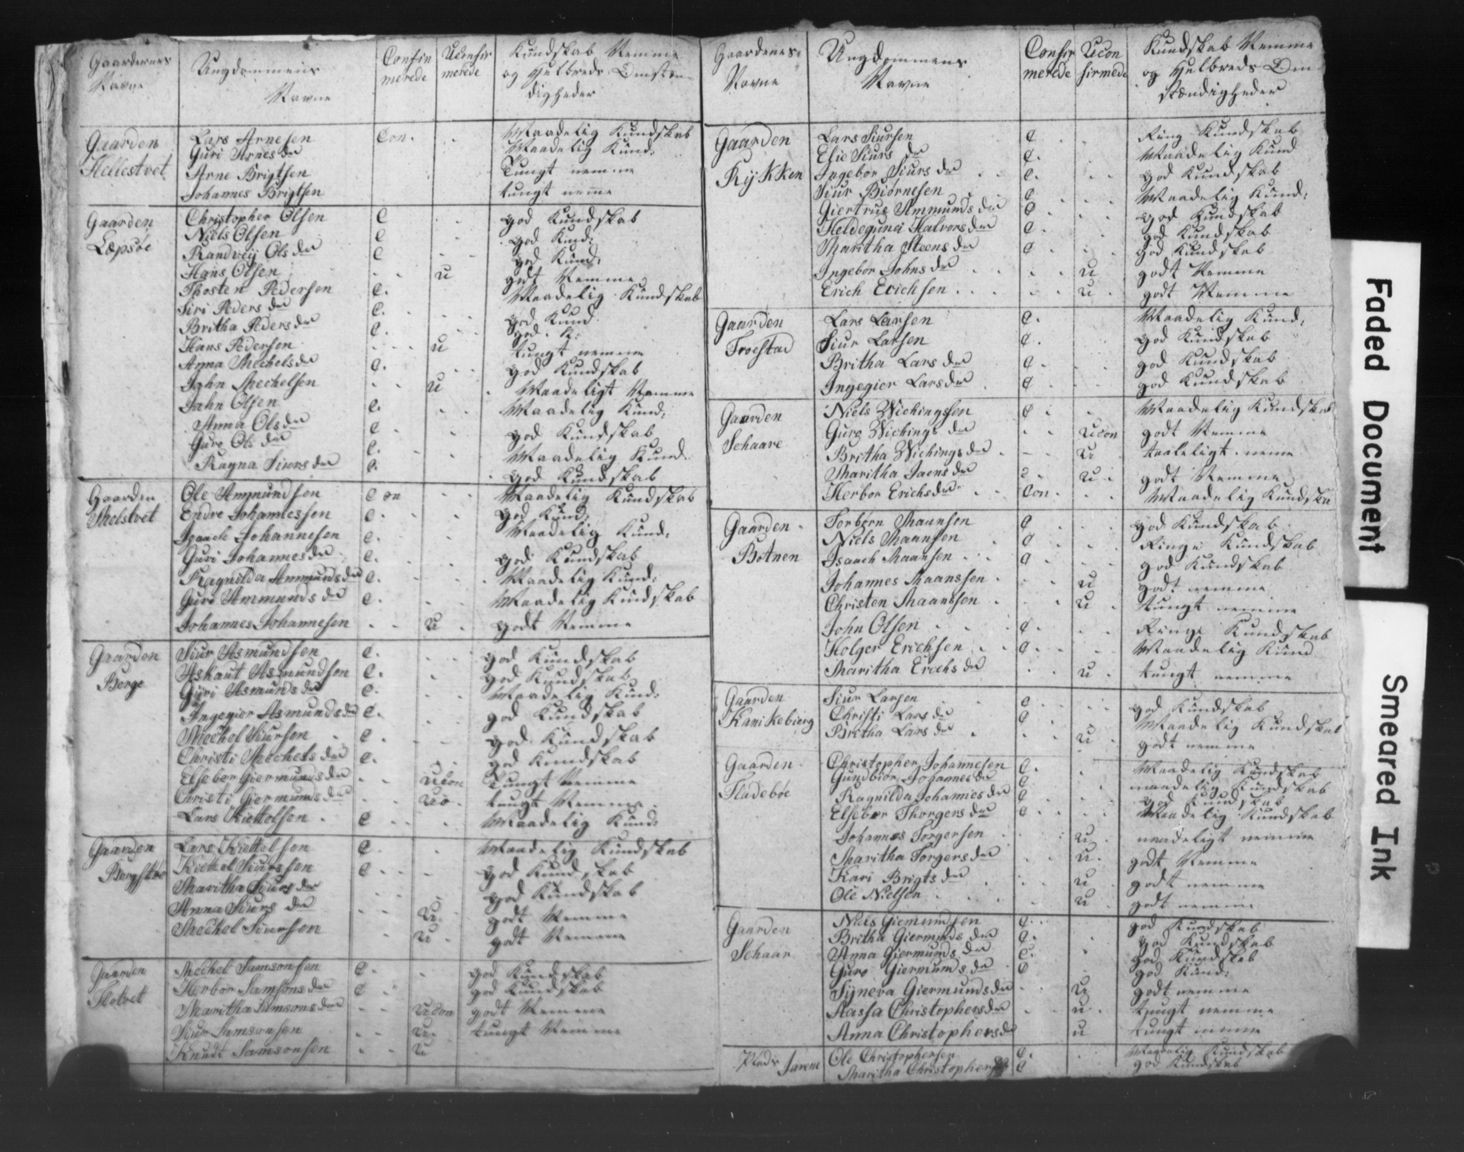 Gaardenes Navne | Ungdommens Navne | Confirmerede | Uconfirmerede | Kundskab Nemme og Helbreds Omstændigheder
Gaarden Hellestvet
Lars Arnesen Con. Maadelig Kundskab
Guri Arnesdr Maadelig Kund:
Arne Brigtsen Tungt nemme
Johannes Brigtsen tungt neme
Gaarden Lepsøe
Christopher Olsen C god Kundskab
Niels Olsen C god Kund:
Randveij Olsdr C god Kund:
Hans Olsen u godt Nemme
Thosten Pedersen C. Maadelig Kundskab
Siri Pedersdr C. god Kund
Britha Pedersdr C. god K:
Hans Pedersen u tungt nemme
Anna Mechelsdr C. god Kundskab
John Mechelsen u Maadeligt Nemme
Jahn Olsen C. Maadelig Kund:
Anna Olsdr C. god Kundskab
Guro Olsdr C. Maadelig Kund
Ragna Siursdr C. god Kundskab
Gaarden
Ole Ammundsen Con Maadelig Kundskab
Endre Johannessen C. god Kund
Isaach Johannesen C. Maadelig Kund:
Guri Johannesdr C. god Kundskab
Ragnilda Ammundsdr C. Maadelig Kund:
Guri Ammundsdr C. Maadelig Kundskab
Johannes Johannesen u godt Nemme
Gaarden Berge
Siur Asmundsen C. god Kundskab
Askaut Asmundsen C. god Kundskab
Guri Asmundsdr C. Maadelig Kund:
Ingegier Asmundsdr C. god Kundskab
Mechel Siursen C. god Kundskab
Christi Mechelsdr C. god Kundskab
Elsebor Giermundsdr Ucon Tungt Nemme
Christi Giermundsdr Uco tungt Nemme
Lars Kiettelsen C Maadelig Kund:
Gaarden
Lars Kiettelsen C Maadelig Kundskab
Kiettel Siursen C god Kundskab
Maritha Siursdr god Kundskab
Anna Siursdr U. godt Nemme
Mechel Siursen U godt Nemme
Gaarden Slotvet
Mechel Samsonsen C. god Kundskab
Herbor Samsonsdr C god Kundskab
Maritha Samsonsdr Ucon godt Nemme
Siur Samsonsen U. tungt Nemme
Knudt Samsonsen U
Gaardenes Navne | Ungdommens Navne | Confirmerede | Uconfirmede | Kundskab Nemme og Helbreds Omstændigheder
Gaarden Rykken
Lars Siursen C Ring Kundskab
Elie Siursdr C. Maadelig Kund
Ingebor Siursdr C. god Kundskab
Siur Biornesen C Maadelig Kund:
Giertrus Ammundsdr C god Kundskab
Heldegunei Halvorsdr C. god Kundskab
Maritha Steensdr C god Kundskab
Ingebor Johnsdr u godt Nemme
Erich Erichsen u godt Nemme
Gaarden Troestad
Lars Larsen C. Maadelig Kund:
Siur Larsen C god Kundskab
Britha Larsdr C god Kundskab
Ingegier Larsdr C god Kundskab
Gaarden Schaare
Niels Wichingsen C Maadelig Kundskab
Guro Wichingsdr Ucon godt Nemme
Britha Wichingsdr U neme
Maritha U godt Nemme
Herbor Erichsdr Con Maadelig Kundska
Gaarden Botnen
Torbern Maansen C god Kundskab
Niels Maansen C Ringe Kundskab
Isaach Maansen C god Kundskab
Johannes Maanssen u godt nemme
Christen Maansen u tungt nemme
John Olsen C Ringe Kundskab
Holger Erichsen C. Maadelig Kund
Maritha Erichsdr u tungt nemme
Gaarden
Siur Larsen C god Kundskab
Christi Larsdr C Maadelig Kundskab
Britha Larsdr U godt nemme
Gaarden Fladeboe
Christopher Johannesen C. Maadelig Kundskab
Gundbior Johannesdr C maadelig Kundskab
Ragnilda Johannesdr C god Kundskab
Elsebor Thorgersdr C Maadelig Kundskab
Johannes Torgersen u maadeligt nemme
Maritha Torgersdr u. godt Nemme
Kari Brigtsdr u godt nemme
Ole Nielsen u godt nemme
Gaarden Schaar
Niels Giermundsen C. god Kundskab
Britha Giermundsdr C. god Kundskab
Anna Giermundsdr C. god Kundskab
Guro Giermundsdr C god Kund:
Syneva Giermundsdr U godt nemme
Aassa Christophersdr U tungt nemme
Anna Christophersdr u tungt nemme
Plads
Ole Christophersen C. Maadelig Kundskab
Maritha Christophersdr C god Kundskab
Faded Document
Smeared Ink